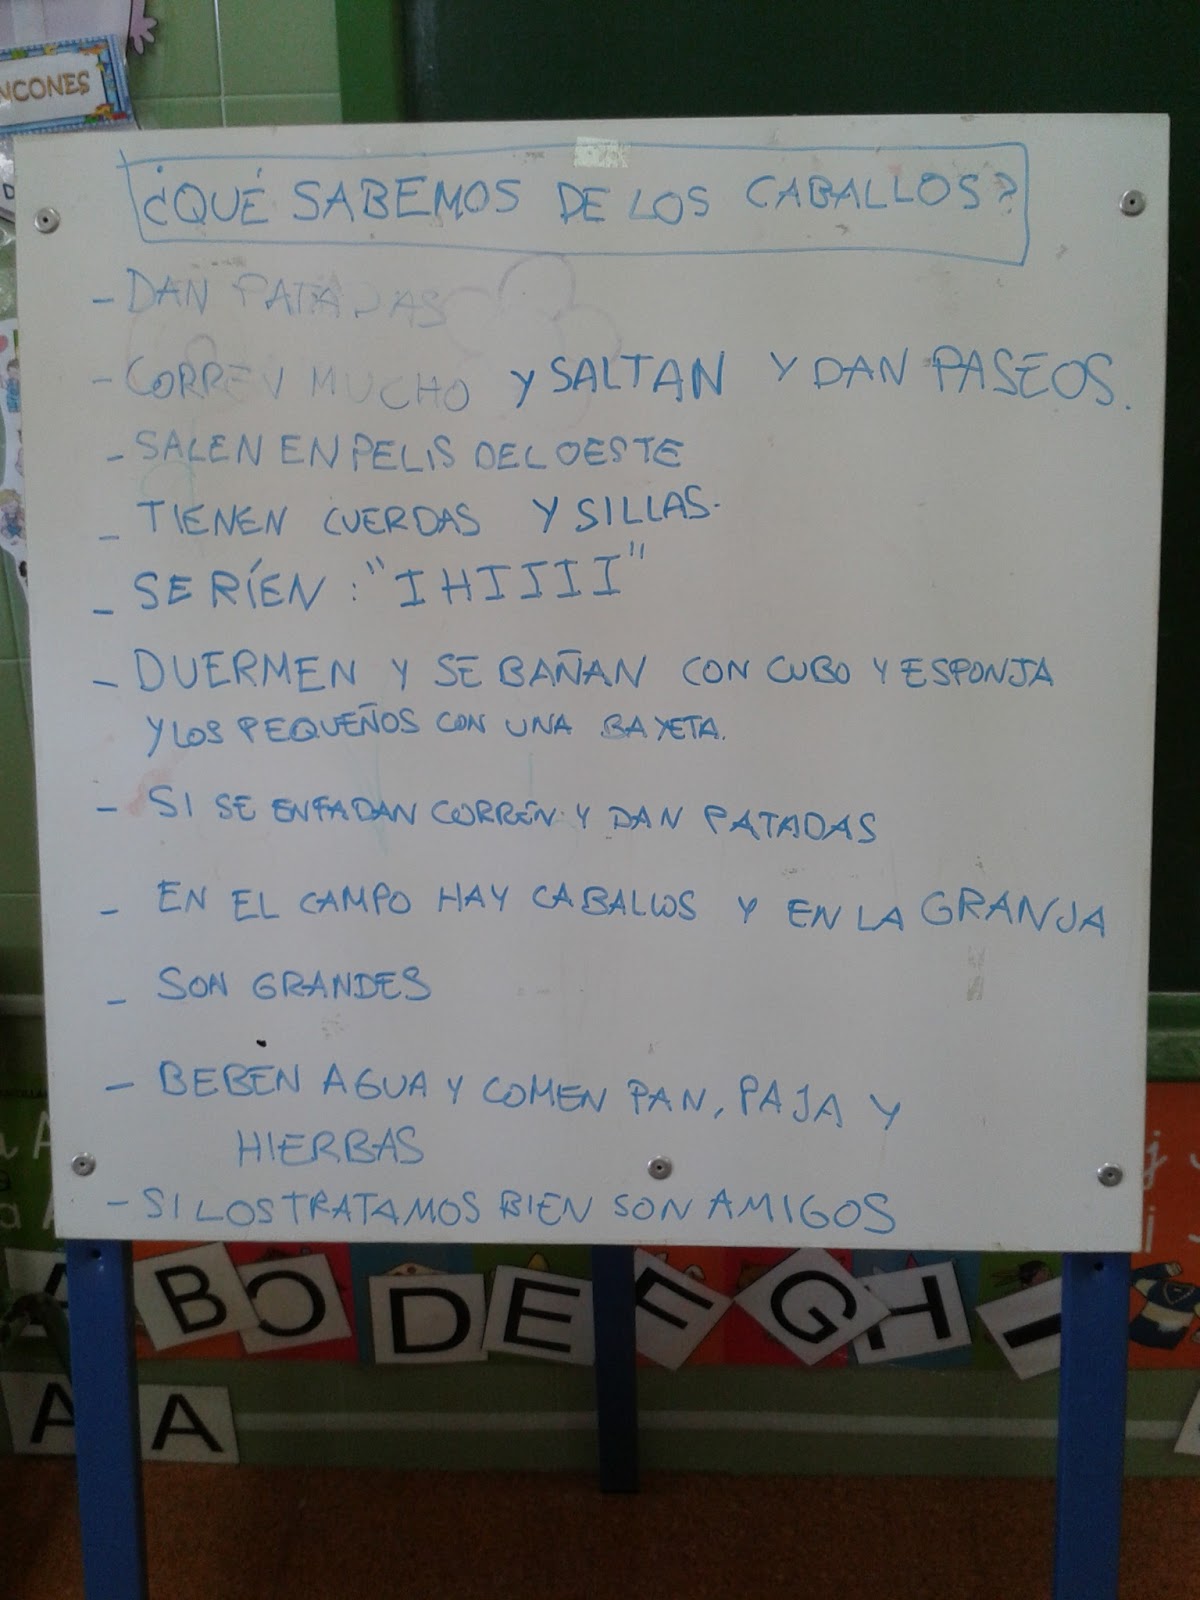 NCONES
¿QUÉ SABEMOS DE LOS CABALLOS?
- DAN PATADAS
- CORREN MUCHO Y SALTAN Y DAN PASEOS.
- SALEN EN PELIS DEL OESTE
- TIENEN CUERDAS Y SILLAS.
- SE RÍEN: "IHIIII"
- DUERMEN Y SE BAÑAN CON CUBO Y ESPONJA
Y LOS PEQUEÑOS CON UNA BAYETA.
- SI SE ENFADAN CORREN Y DAN PATADAS
- EN EL CAMPO HAY CABALLOS Y EN LA GRANJA
- SON GRANDES
- BEBEN AGUA Y COMEN PAN, PAJA Y
HIERBAS
- SI LOS TRATAMOS BIEN SON AMIGOS
A B C D E F G H I
A A